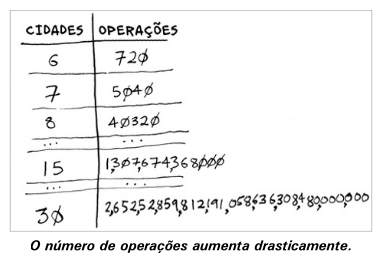 CIDADES OPERAÇÕES
6 720
7 5040
8 40320
... ...
15 1,307,674,368,000
... ...
30 265,252,859,812,191,058,636,308,480,000,000
O número de operações aumenta drasticamente.